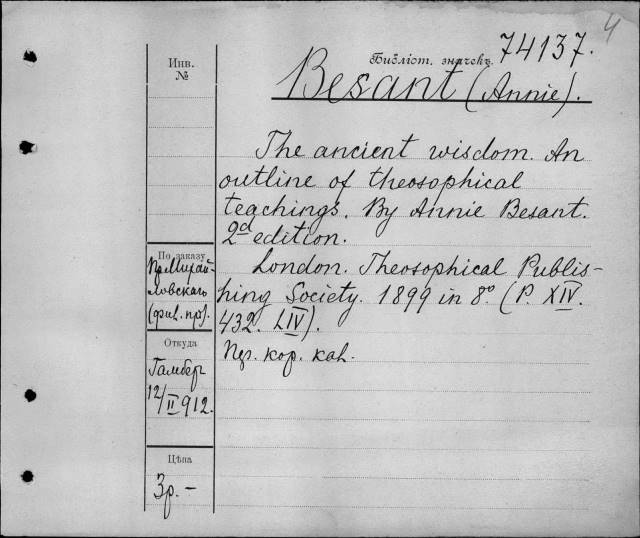 4
Библіот. значекъ 74137.
Besant (Annie).
The ancient wisdom. An
outline of theosophical
teachings. By Annie Besant.
2d edition.
London. Theosophical Publis-
hing Society. 1899 in 8º. (P. XIV.
432. LIV).
кор. кан.
Инв.
№
По заказу
Михай-
ловскаго
Откуда
Гамберг
12/II 912.
Цѣна
3р. –